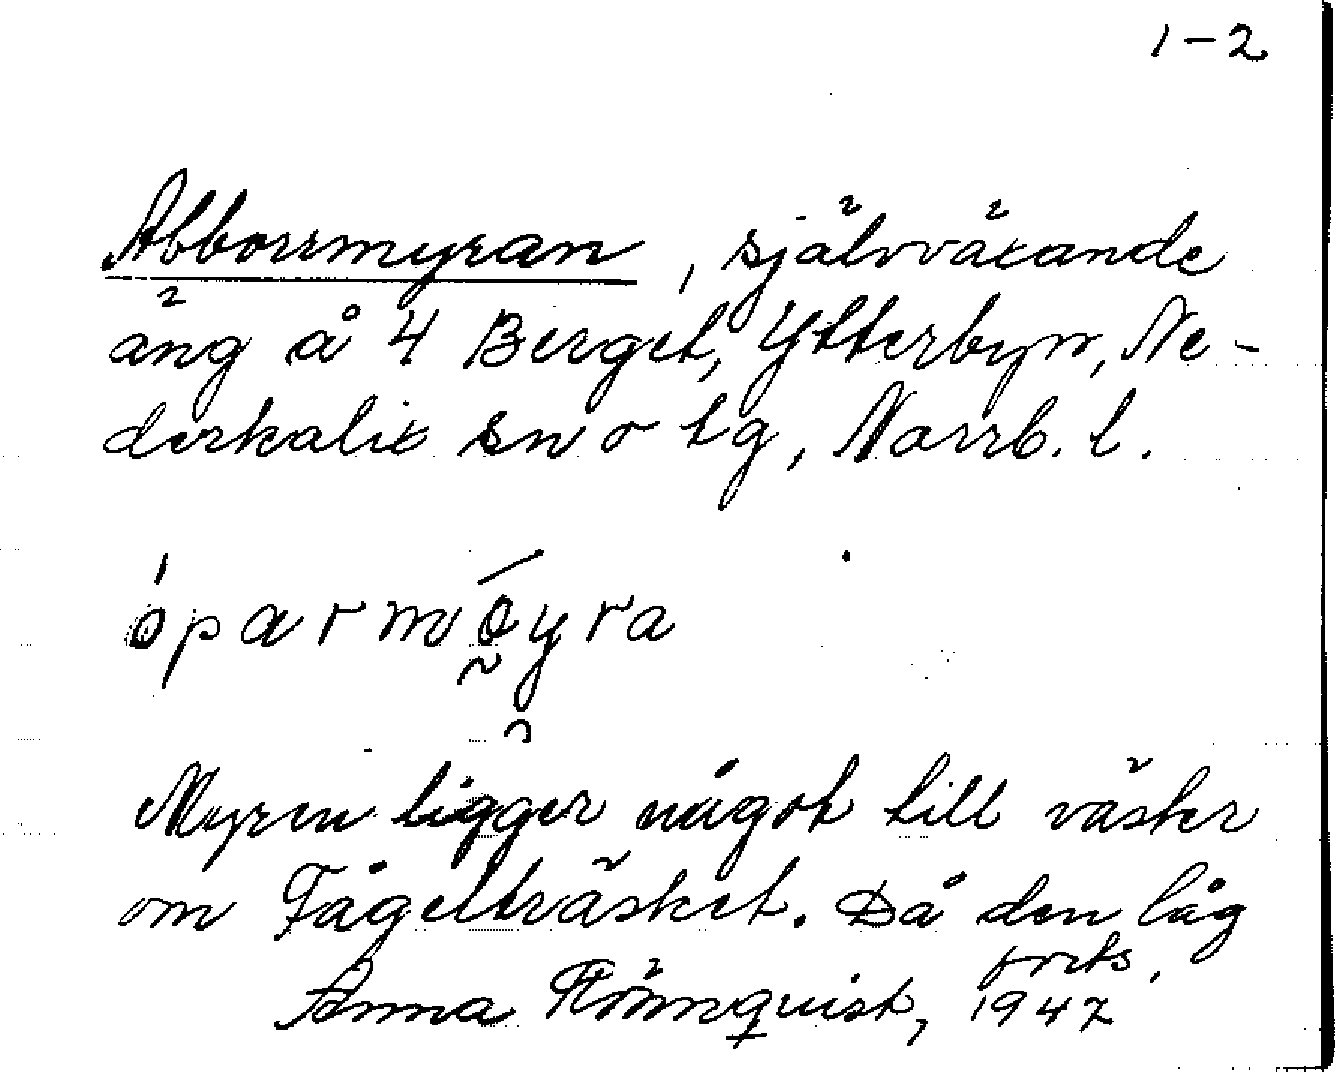 1-2
Abborrmyran, självväxande
äng å 4 Berget, Ytterbyn, Ne-
derkalix sn o tg, Norrb. l.
óparmóyra
Myren ligger något till väster
om Fågelträsket. Då den låg
forts.
Anna Rönnquist, 1947